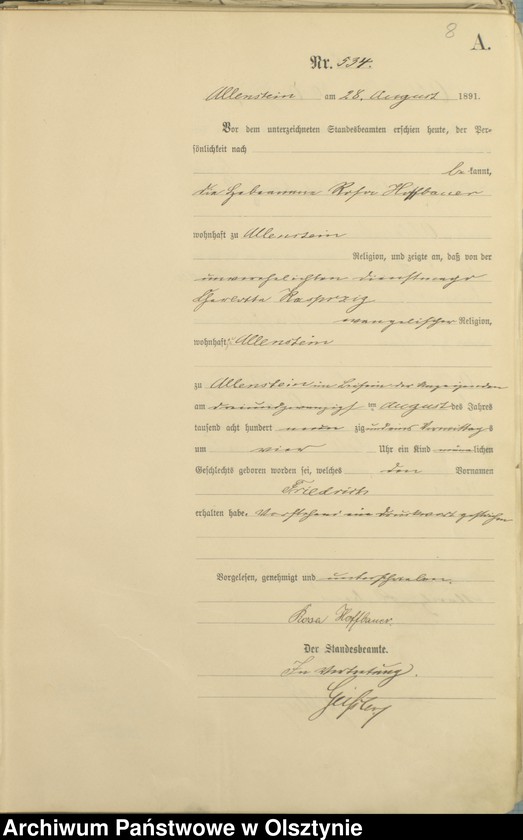 8
A.
Nr. 534.
Allenstein am 28. August 1891.
Vor dem unterzeichneten Standesbeamten erschien heute, der Per-
sönlichkeit nach
be kannt,
die Hebeamme Rosa Hoffbauer
wohnhaft zu Allenstein
Religion, und zeigte an, daß von der
unverehelichten Dienstmagd
Kasprzig
evangelischer Religion,
wohnhaft Allenstein
zu Allenstein im Beisein der Anzeigenden
am dreiundzwanzigsten August des Jahres
tausend acht hundert neun zig und eins Vormittags
um vier Uhr ein Kind männlichen
Geschlechts geboren worden sei, welches den Vornamen
Friedrich
erhalten habe. Vorstehend ein Druckwort gestrichen
Vorgelesen, genehmigt und unterschrieben.
Rosa Hoffbauer.
Der Standesbeamte.
In Vertretung.
Archiwum Państwowe w Olsztynie